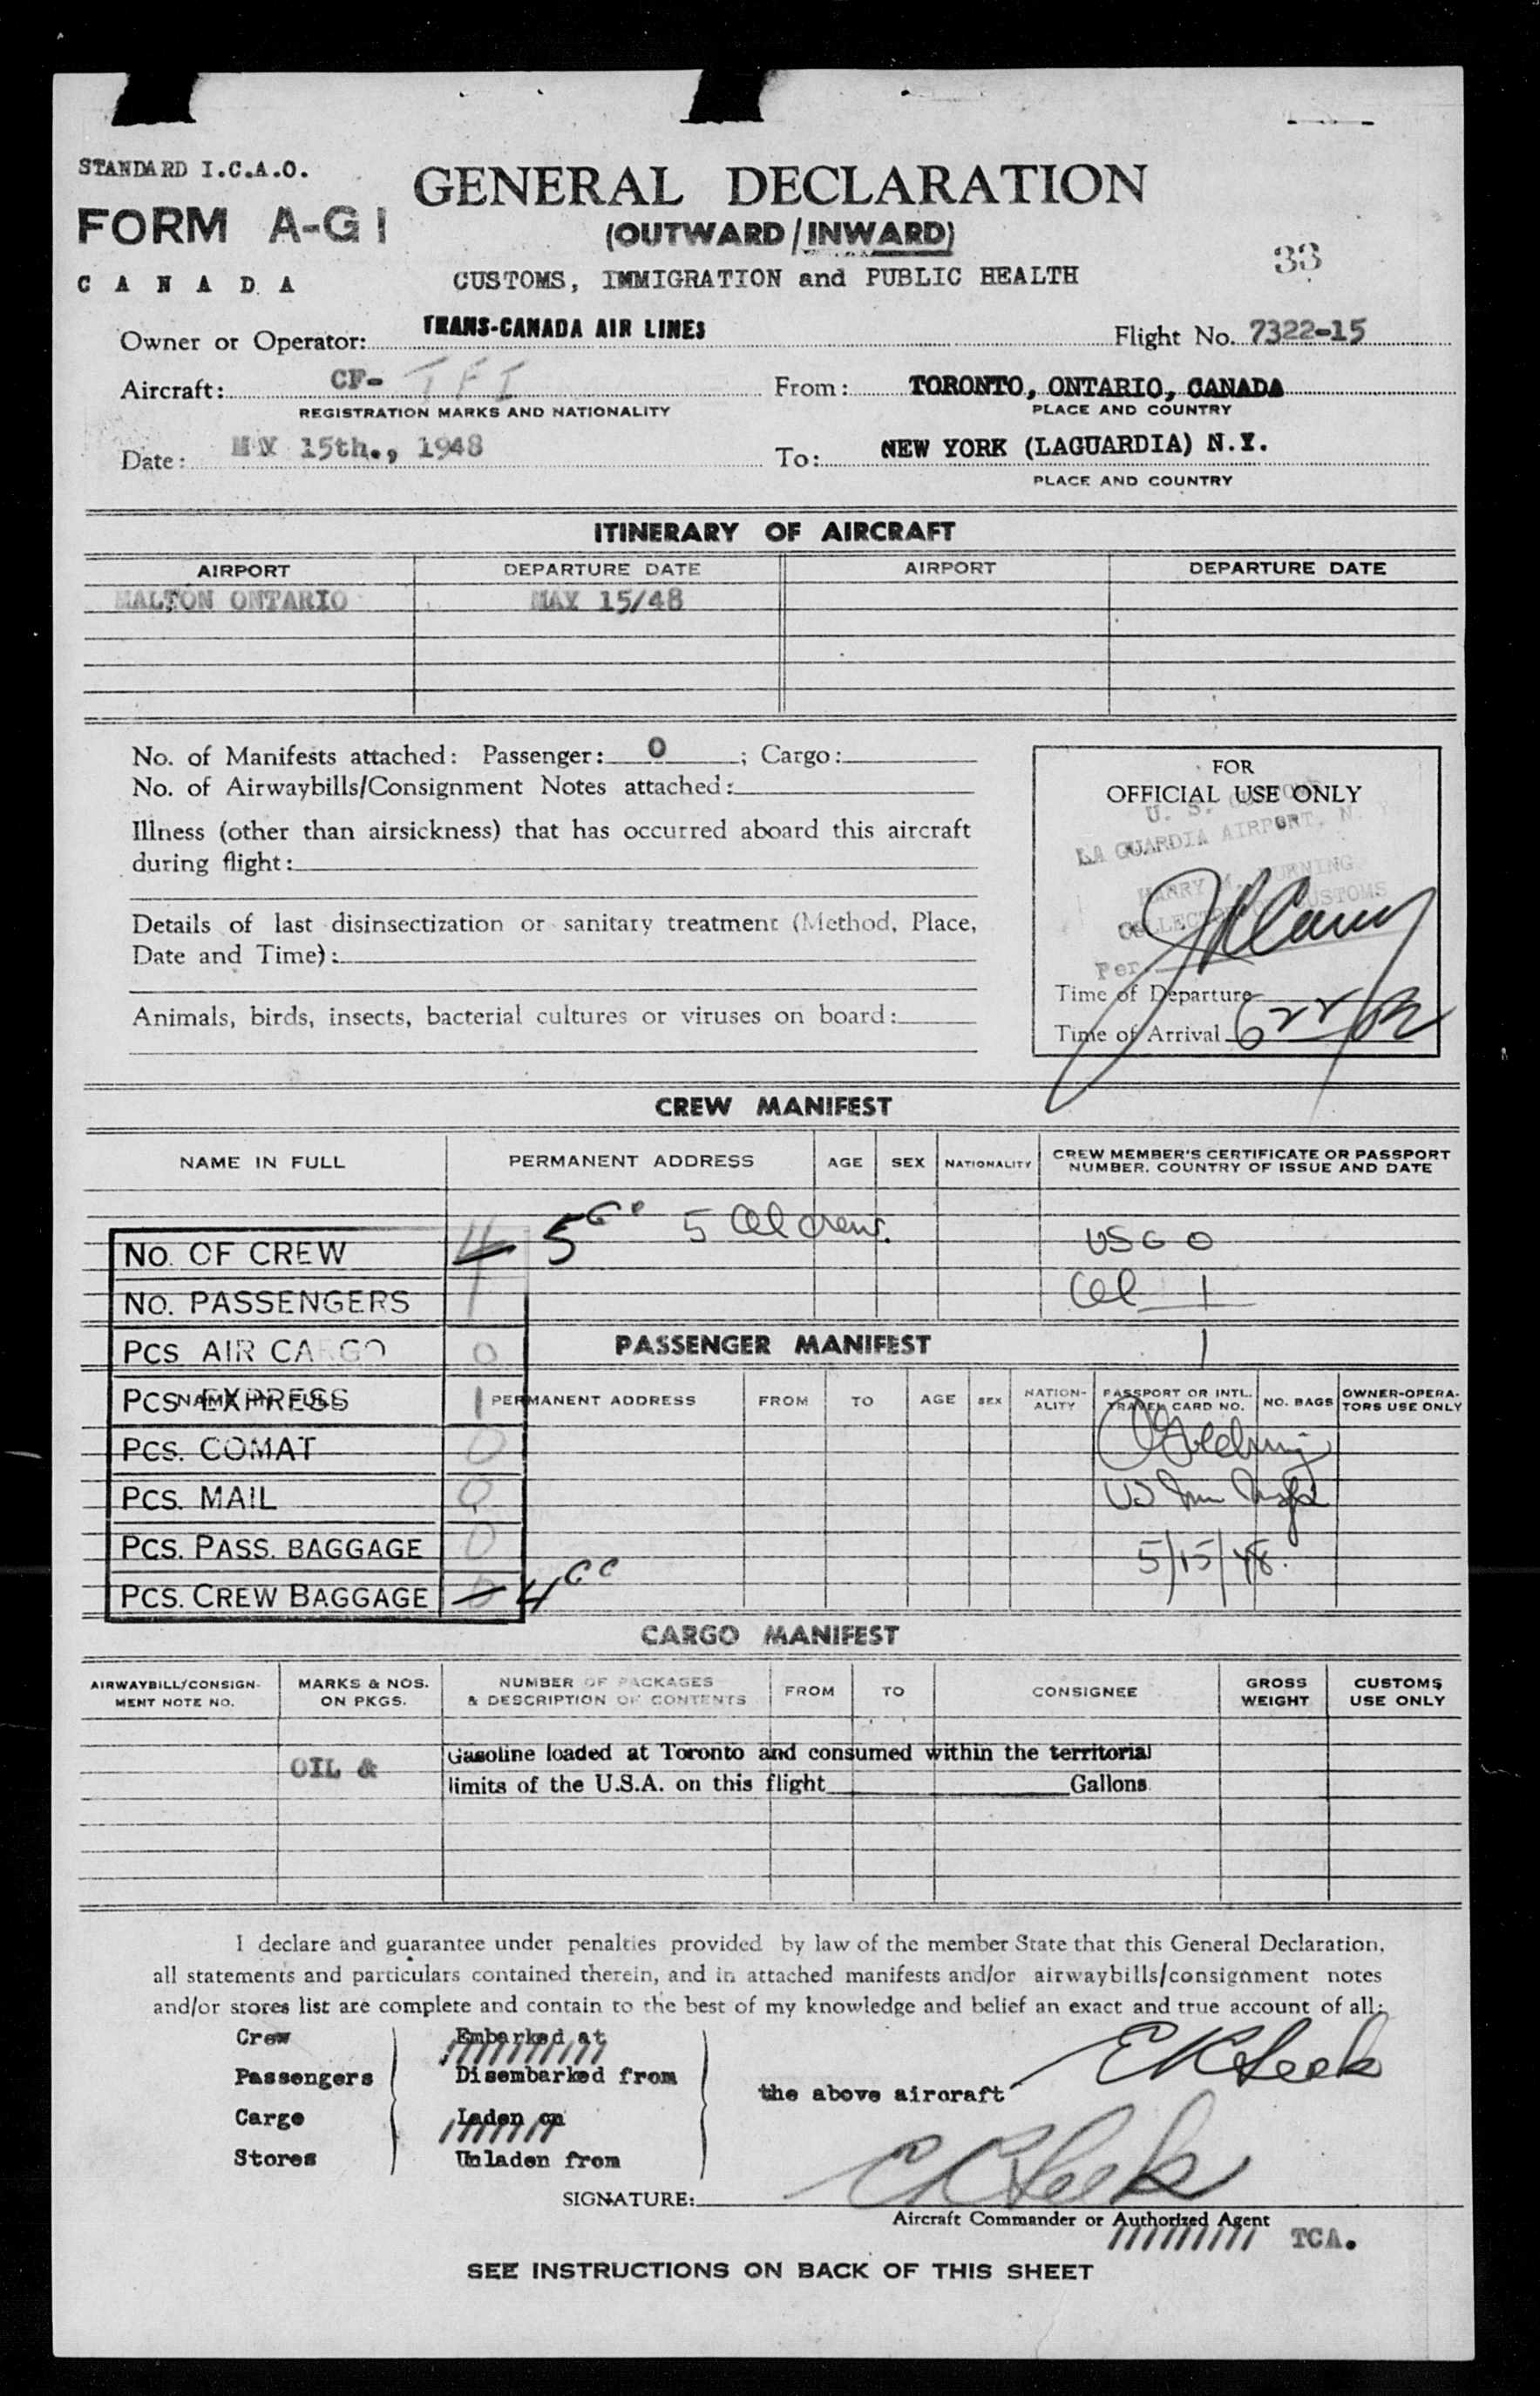 STANDARD I.C.A.O.
FORM A-G1
CANADA
GENERAL DECLARATION
(OUTWARD/INWARD)
CUSTOMS, IMMIGRATION and PUBLIC HEALTH
33
Owner or Operator: TRANS-CANADA AIR LINES Flight No. 7322-15
Aircraft: CF- TFI From: TORONTO, ONTARIO, CANADA
REGISTRATION MARKS AND NATIONALITY PLACE AND COUNTRY
Date: MAY 15th., 1948 To: NEW YORK (LAGUARDIA) N.Y.
PLACE AND COUNTRY
ITINERARY OF AIRCRAFT
AIRPORT DEPARTURE DATE AIRPORT DEPARTURE DATE
MALTON ONTARIO MAY 15/48
No. of Manifests attached: Passenger: 0 ; Cargo:
No. of Airwaybills/Consignment Notes attached:
Illness (other than airsickness) that has occurred aboard this aircraft
during flight:
Details of last disinsectization or sanitary treatment (Method, Place,
Date and Time):
Animals, birds, insects, bacterial cultures or viruses on board:
FOR
OFFICIAL USE ONLY
U. S. CUSTOMS
LA GUARDIA AIRPORT, N. Y.
HARRY M. DURNING
COLLECTOR OF CUSTOMS
Per
Time of Departure
Time of Arrival 6
CREW MANIFEST
NAME IN FULL PERMANENT ADDRESS AGE SEX NATIONALITY CREW MEMBER'S CERTIFICATE OR PASSPORT
NUMBER, COUNTRY OF ISSUE AND DATE
No. OF CREW 4 5 5 crew. USC 0
No. PASSENGERS 1 1
PASSENGER MANIFEST 1
PCS AIR CARGO 0
PCS EXPRESS 1
NAME IN FULL PERMANENT ADDRESS FROM TO AGE SEX NATION-
ALITY PASSPORT OR INTL.
TRAVEL CARD NO. NO. BAGS OWNER-OPERA-
TORS USE ONLY
PCS. COMAT 0
PCS. MAIL 0 US Imm Insp
PCS. PASS. BAGGAGE 0 5/15/48.
PCS. CREW BAGGAGE 4
CARGO MANIFEST
AIRWAYBILL/CONSIGN-
MENT NOTE NO. MARKS & NOS.
ON PKGS. NUMBER OF PACKAGES
& DESCRIPTION OF CONTENTS FROM TO CONSIGNEE GROSS
WEIGHT CUSTOMS
USE ONLY
OIL & Gasoline loaded at Toronto and consumed within the territorial
limits of the U.S.A. on this flight Gallons
I declare and guarantee under penalties provided by law of the member State that this General Declaration,
all statements and particulars contained therein, and in attached manifests and/or airwaybills/consignment notes
and/or stores list are complete and contain to the best of my knowledge and belief an exact and true account of all:
Crew Embarked at
Passengers Disembarked from
the above aircraft
Cargo Laden on
Stores Unladen from
SIGNATURE:
Aircraft Commander or Authorized Agent TCA.
SEE INSTRUCTIONS ON BACK OF THIS SHEET